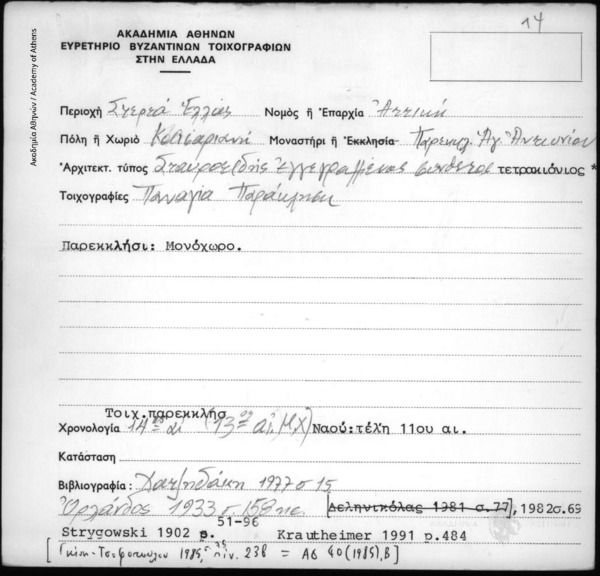 14
ΑΚΑΔΗΜΙΑ ΑΘΗΝΩΝ
ΕΥΡΕΤΗΡΙΟ ΒΥΖΑΝΤΙΝΩΝ ΤΟΙΧΟΓΡΑΦΙΩΝ
ΣΤΗΝ ΕΛΛΑΔΑ
Ακαδημία Αθηνών / Academy of Athens
Περιοχή Στερεά Ελλάς Νομός ἤ Ἐπαρχία Ἀττική
Πόλη ἤ Χωριό Καισαριανή Μοναστήρι ἤ Ἐκκλησία Παρεκκλ. Ἁγ. Ἀντωνίου
Ἀρχιτεκτ. τύπος Σταυροειδής ἐγγεγραμμένος σύνθετος τετρακιόνιος *
Τοιχογραφίες Παναγία Παράκληση
Παρεκκλήσι: Μονόχωρο.
Τοιχ.παρεκκλησ
Χρονολογία 14ος αἰ (13ος αἰ. Μ.Χ) Ναού:τέλη 11ου αι.
Κατάσταση
Βιβλιογραφία: Χατζηδάκη 1977 σ 15
Ὀρλάνδος 1933 σ 158 κε. [Δεληνικόλας 1981 σ.77], 1982σ.69
51-96
Strygowski 1902 p. Krautheimer 1991 p.484
[Γκίνη-Τσοφοπούλου 1985, πίν. 23β = ΑΔ 40 (1985), Β]